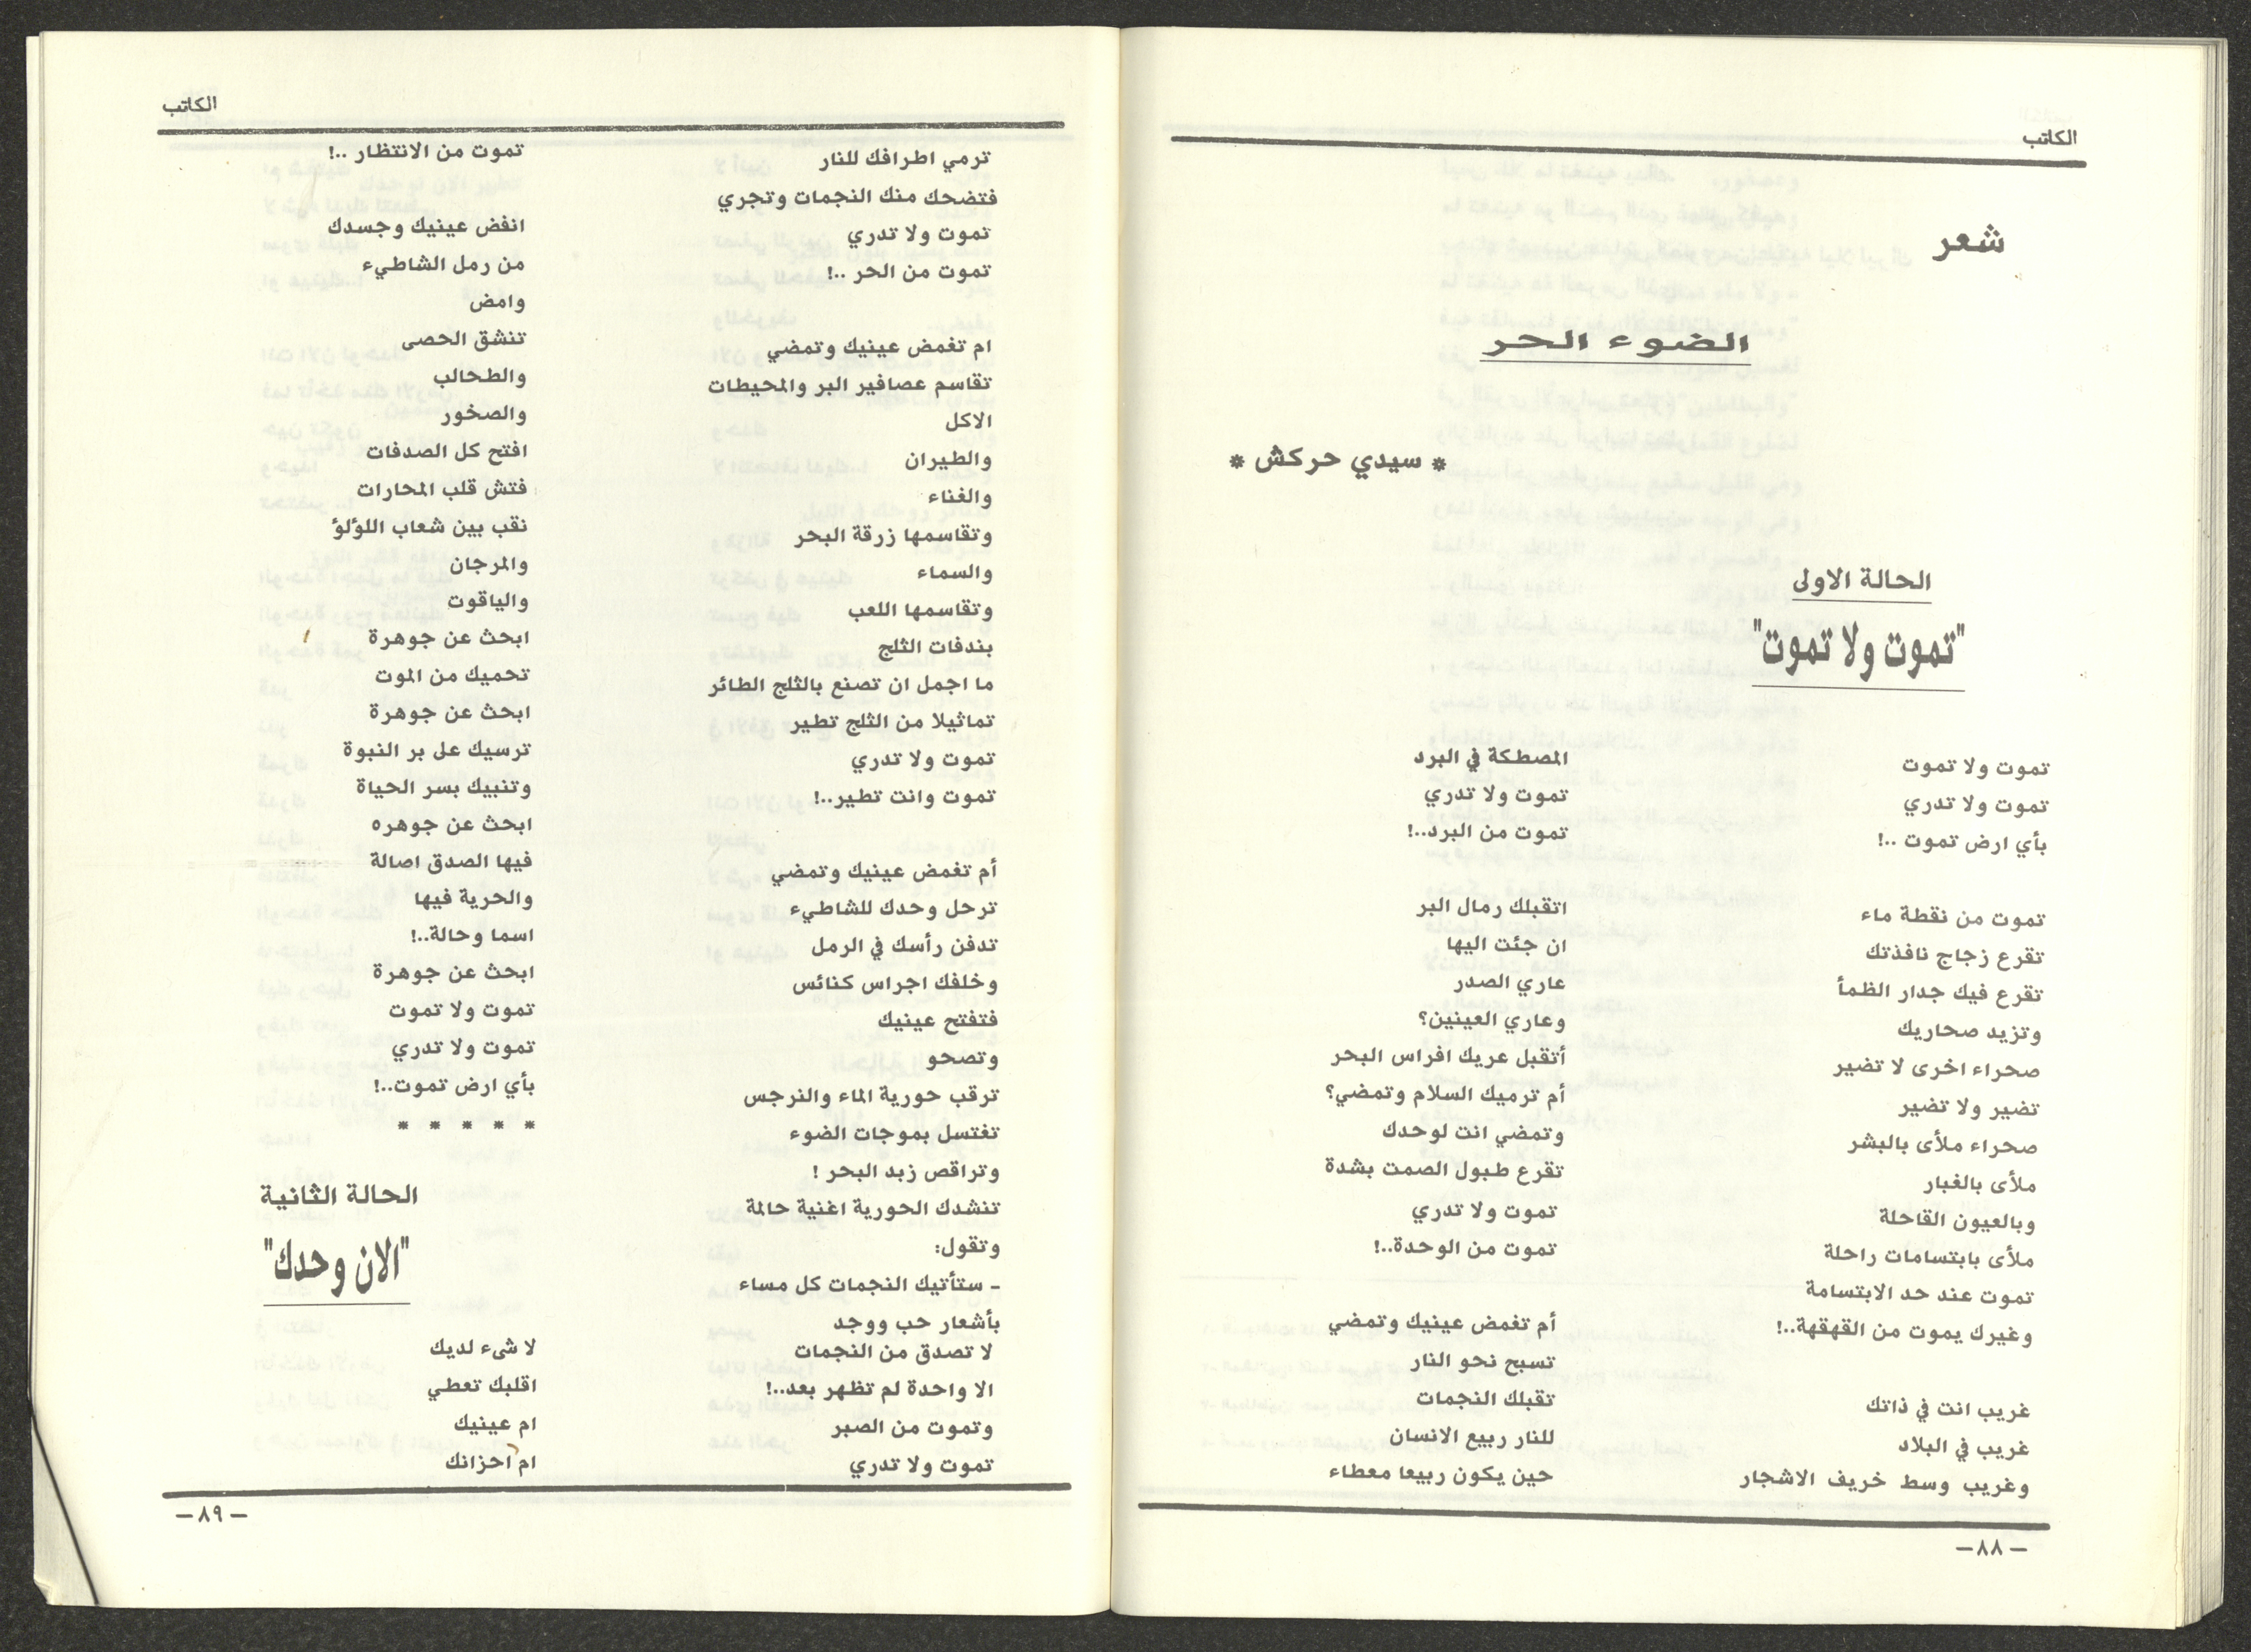 الكاتب
شعر
الضوء الحر
* سيدي حركش *
الحالة الاولى
"تموت ولا تموت"
تموت ولا تموت
تموت ولا تدري
بأي ارض تموت ..!
تموت من نقطة ماء
تقرع زجاج نافذتك
تقرع فيك جدار الظمأ
وتزيد صحاريك
صحراء اخرى لا تضير
تضير ولا تضير
صحراء ملأى بالبشر
ملأى بالغبار
وبالعيون القاحلة
ملأى بابتسامات راحلة
تموت عند حد الابتسامة
وغيرك يموت من القهقهة..!
غريب انت في ذاتك
غريب في البلاد
وغريب وسط خريف الاشجار
المصطكة في البرد
تموت ولا تدري
تموت من البرد..!
اتقبلك رمال البر
ان جئت اليها
عاري الصدر
وعاري العينين؟
أتقبل عريك افراس البحر
أم ترميك السلام وتمضي؟
وتمضي انت لوحدك
تقرع طبول الصمت بشدة
تموت ولا تدري
تموت من الوحدة..!
أم تغمض عينيك وتمضي
تسبح نحو النار
تقبلك النجمات
للنار ربيع الانسان
حين يكون ربيعا معطاء
–٨٨–
الكاتب
ترمي اطرافك للنار
فتضحك منك النجمات وتجري
تموت ولا تدري
تموت من الحر ..!
ام تغمض عينيك وتمضي
تقاسم عصافير البر والمحيطات
الاكل
والطيران
والغناء
وتقاسمها زرقة البحر
والسماء
وتقاسمها اللعب
بندفات الثلج
ما اجمل ان تصنع بالثلج الطائر
تماثيلا من الثلج تطير
تموت ولا تدري
تموت وانت تطير..!
أم تغمض عينيك وتمضي
ترحل وحدك للشاطيء
تدفن رأسك في الرمل
وخلفك اجراس كنائس
فتفتح عينيك
وتصحو
ترقب حورية الماء والنرجس
تغتسل بموجات الضوء
وتراقص زبد البحر !
تنشدك الحورية اغنية حالمة
وتقول:
– ستأتيك النجمات كل مساء
بأشعار حب ووجد
لا تصدق من النجمات
الا واحدة لم تظهر بعد..!
وتموت من الصبر
تموت ولا تدري
تموت من الانتظار ..!
انفض عينيك وجسدك
من رمل الشاطيء
وامض
تنشق الحصى
والطحالب
والصخور
افتح كل الصدفات
فتش قلب المحارات
نقب بين شعاب اللؤلؤ
والمرجان
والياقوت
ابحث عن جوهرة
تحميك من الموت
ابحث عن جوهرة
ترسيك على بر النبوة
وتنبيك بسر الحياة
ابحث عن جوهره
فيها الصدق اصالة
والحرية فيها
اسما وحالة..!
ابحث عن جوهرة
تموت ولا تموت
تموت ولا تدري
بأي ارض تموت..!
* * * * *
الحالة الثانية
"الان وحدك"
لا شىء لديك
اقلبك تعطي
ام عينيك
ام احزانك
–٨٩–